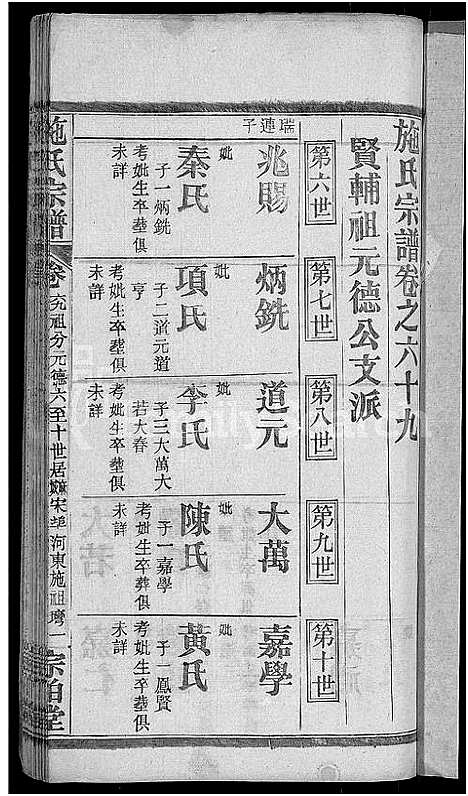 施氏宗譜卷之六十九
賢輔祖元德公支派
第六世
第七世
第八世
第九世
第十世
瑞連子
兆賜
妣
秦氏
子一炳銑
考妣生卒塟俱
未詳
炳銑
妣
項氏
子二道元道
亨
考妣生卒塟俱
未詳
道元
妣
李氏
子三大萬大
若大春
考妣生卒塟俱
未詳
大萬
妣
陳氏
子一嘉學
考妣生卒葬俱
未詳
嘉學
妣
黃氏
子一鳳賢
考妣生卒塟俱
未詳
施氏宗譜
卷
祖分元德六至十世居
河東施祖灣
一